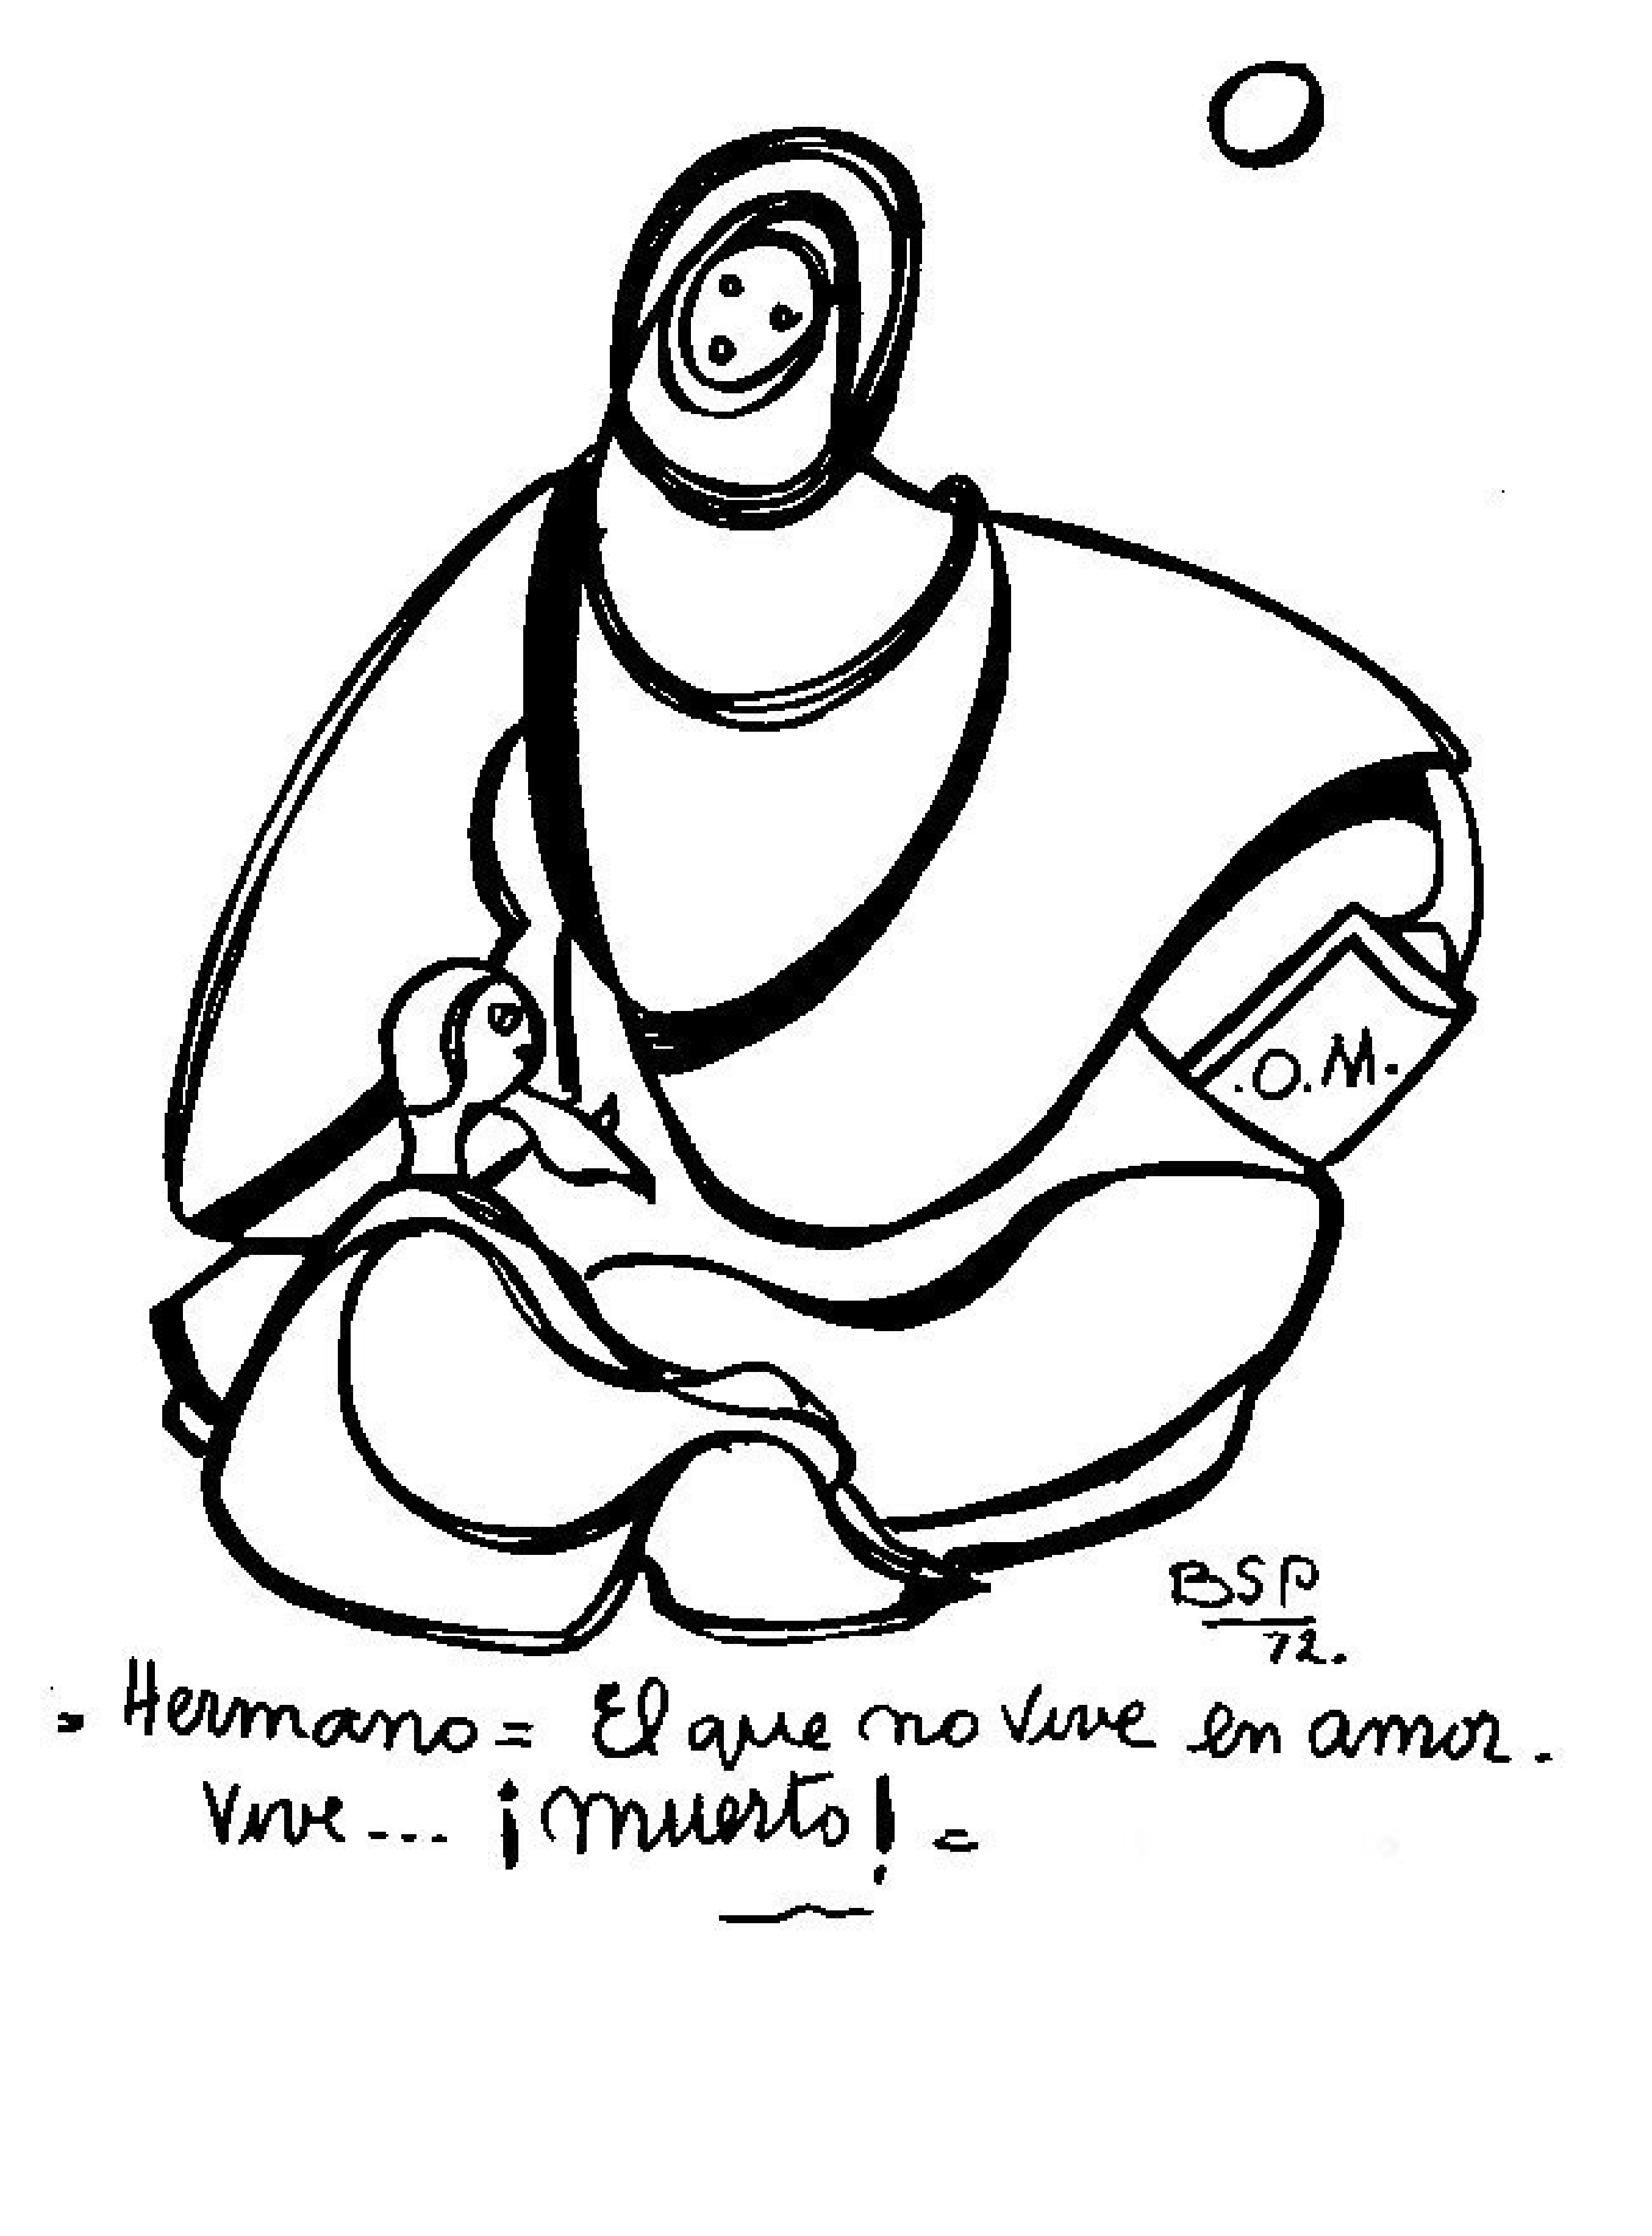 .O.M.
BSP
72.
= Hermano = El que no vive en amor.
Vive... ¡muerto! =